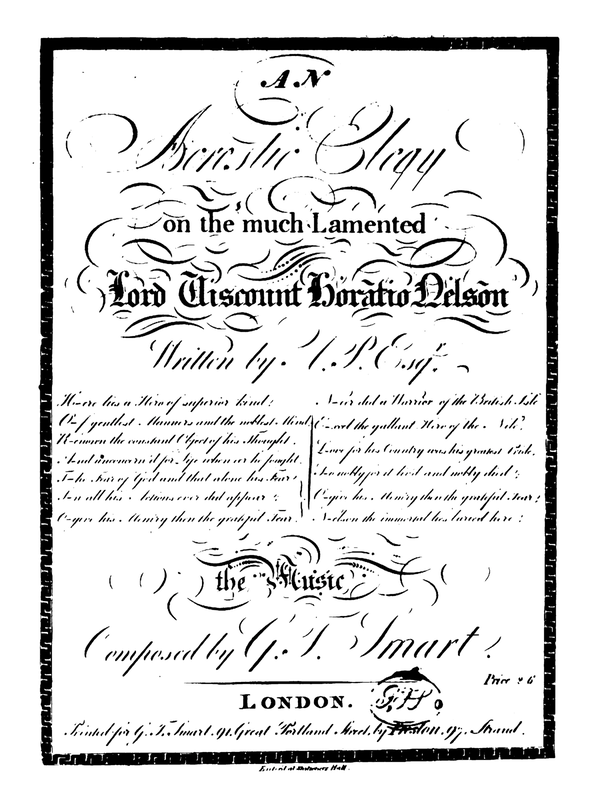 AN
Acrostic Elegy
on the much Lamented
Lord Viscount Horatio Nelson
Written by A. P. Esqr.
H-ere lies a Hero of superior kind;
O-f gentlest Manners and the noblest Mind
R-enown the constant Object of his Thought,
A-nd unconcern'd for Life when e'er he fought.
T-he Fear of God and that alone his Fear
I-n all his Actions ever did appear;
O-give his Mem'ry then the grateful Tear.
N-e'er did a Warrior of the British Isle
E-xcel the gallant Hero of the Nile.
L-ove for his Country was his greatest Pride,
S-o nobly for it lived and nobly died;
O-give his Mem'ry then the grateful Tear;
N-elson the immortal lies buried here;
the Music
Composed by G. T. Smart.
Price 2 6
LONDON.
Printed for G. T. Smart, 91, Great Portland Street, by Preston, 97, Strand.
Enter'd at Stationers Hall.